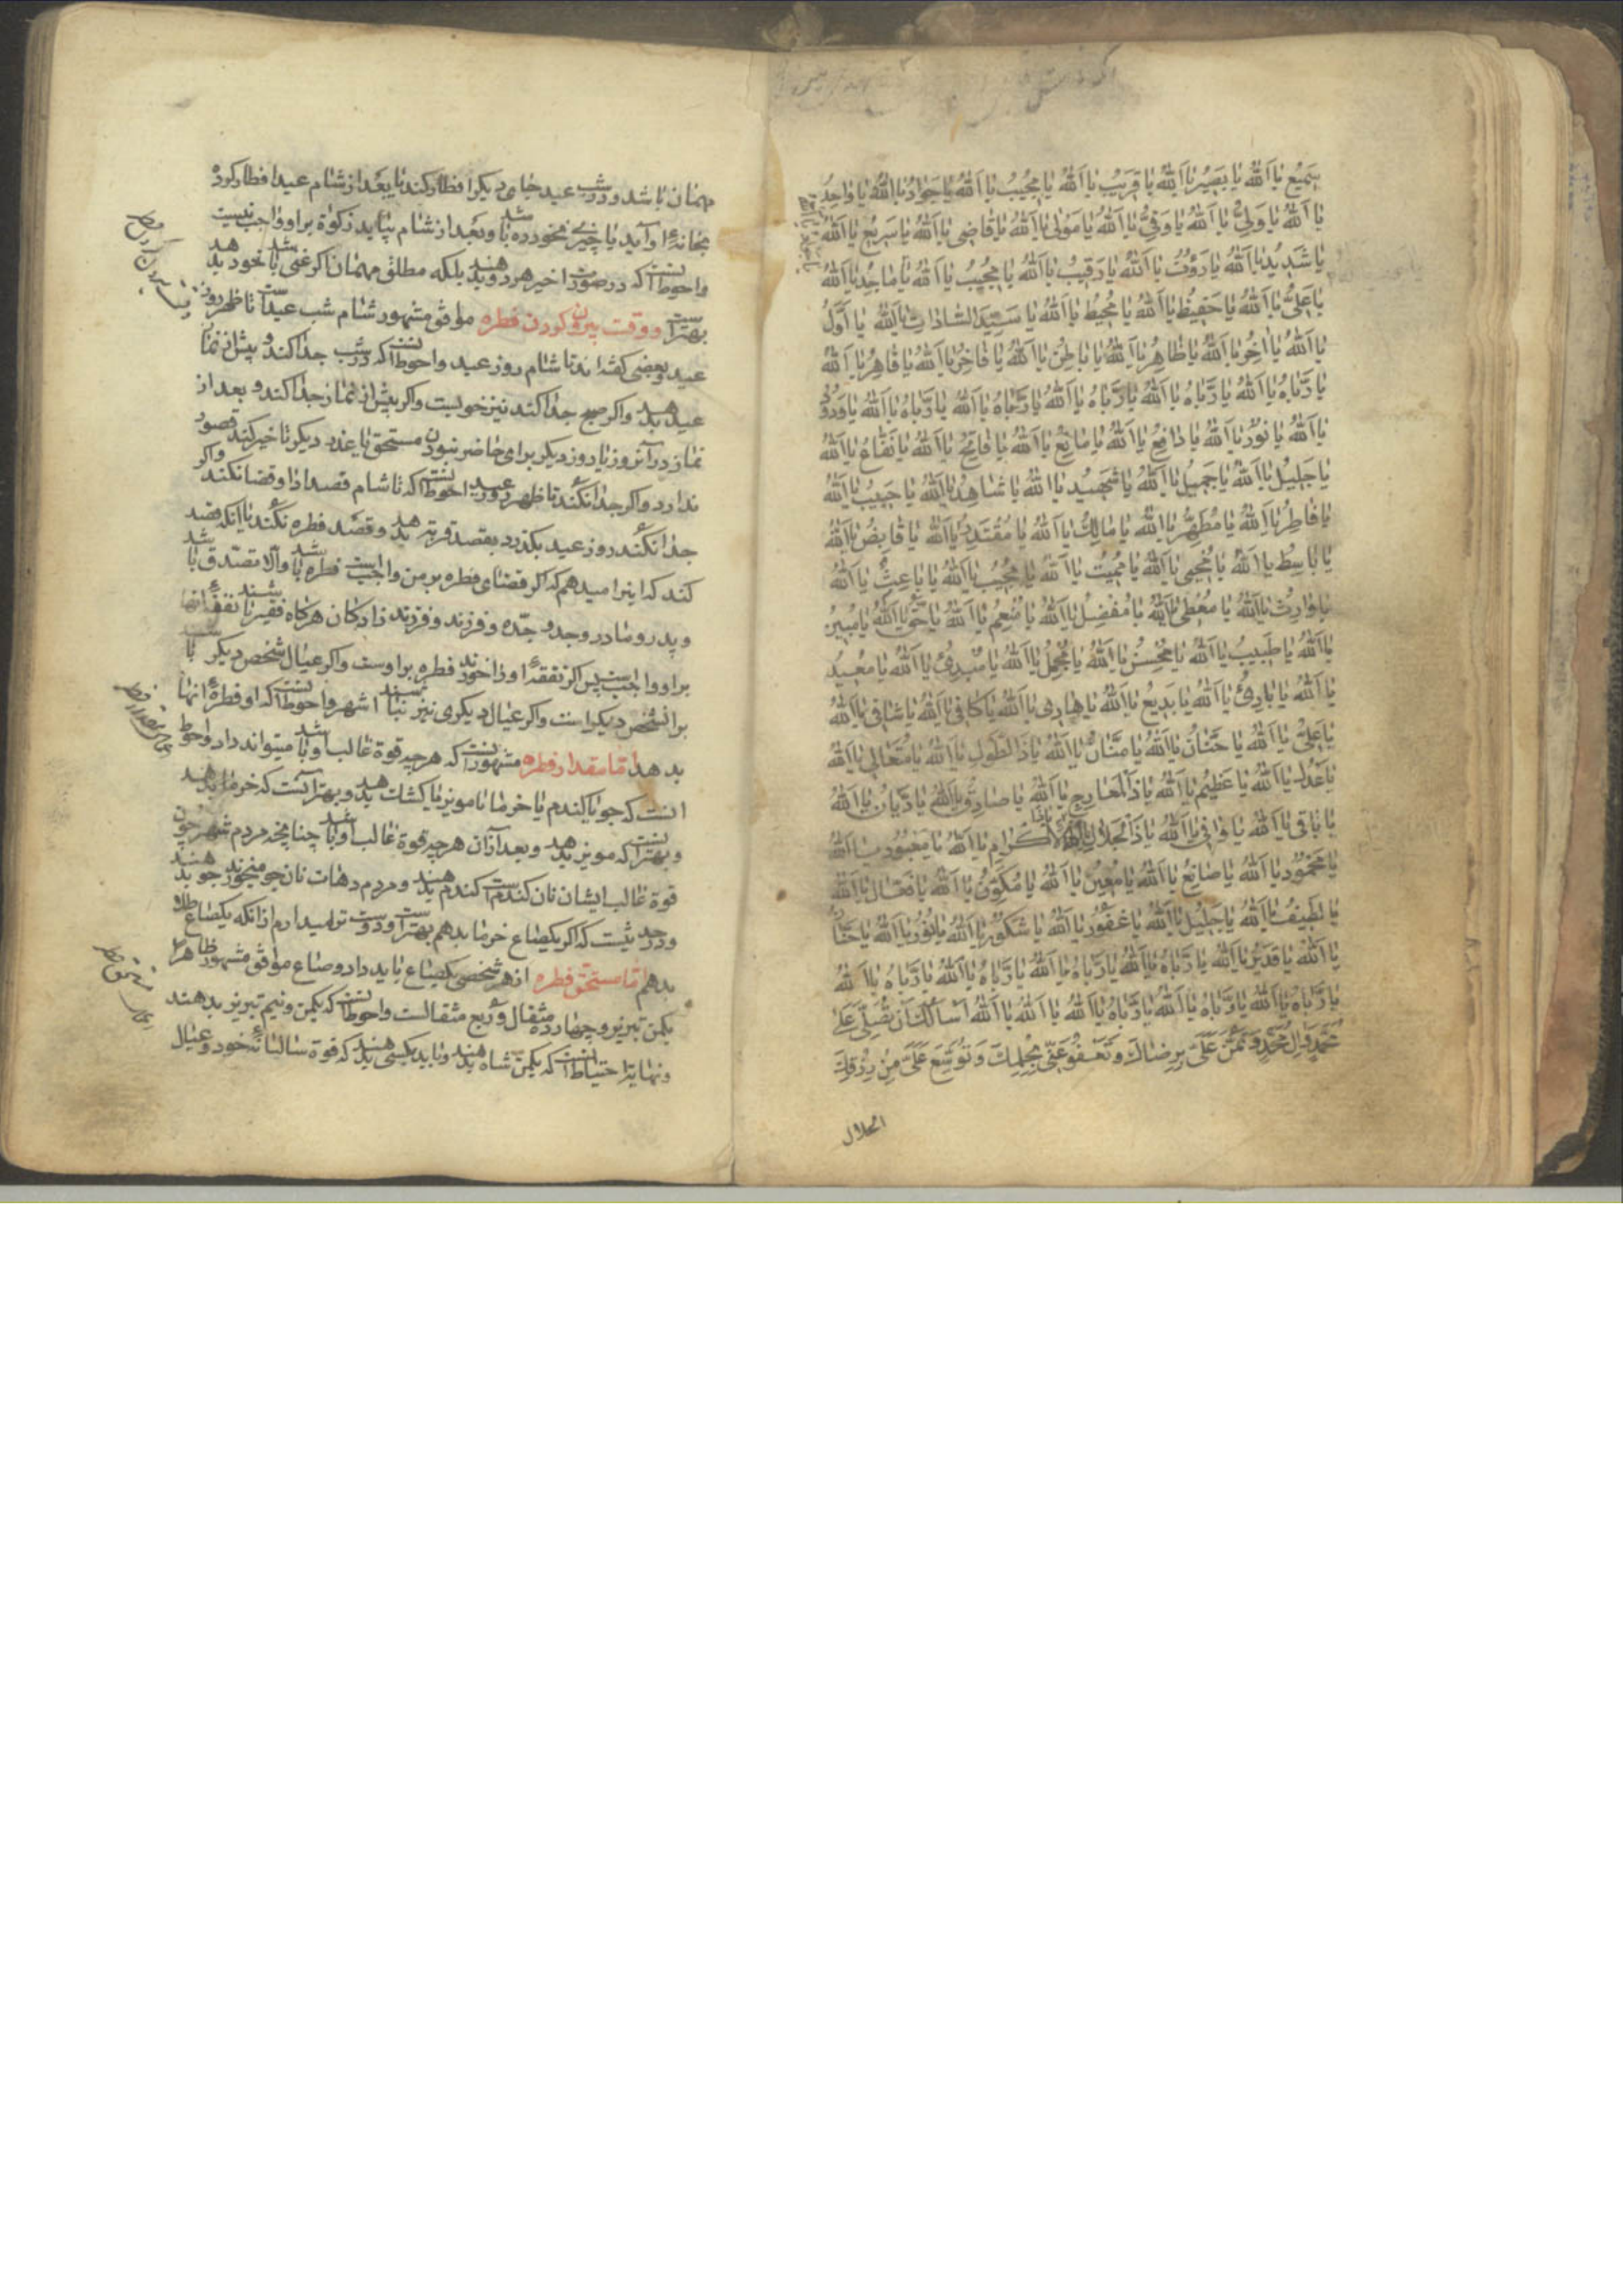 سَمِيعُ يا اَللهُ يا بَصِيرُ يا اَللهُ يا قَرِيبُ يا اَللهُ يا مُجِيبُ يا اَللهُ يا جَوادُ يا اَللهُ يا واحِدُ
يا اَللهُ يا وَلِيُّ يا اَللهُ يا وَفِيُّ يا اَللهُ يا مَوْلى يا اَللهُ يا قاضِى يا اَللهُ يا سَرِيعُ يا اَللهُ
يا شَدِيدُ يا اَللهُ يا رَؤُفُ يا اَللهُ يا رَقِيبُ يا اَللهُ يا مُجِيبُ يا اَللهُ يا ماجِدُ يا اَللهُ
يا عَلِىُّ يا اَللهُ يا حَفِيظُ يا اَللهُ يا مُحِيطُ يا اَللهُ يا سَيِّدَ السّاداتِ يا اَللهُ يا اَوَّلُ
يا اَللهُ يا اخِرُ يا اَللهُ يا ظاهِرُ يا اَللهُ يا باطِنُ يا اَللهُ يا فاخِرُ يا اَللهُ يا قاهِرُ يا اَللهُ
يا رَبّاهُ يا اَللهُ يا رَبّاهُ يا اَللهُ يا رَبّاهُ يا اَللهُ يا رَبّاهُ يا اَللهُ يا رَبّاهُ يا اَللهُ يا وَدُودُ
يا اَللهُ يا نُورُ يا اَللهُ يا دافِعُ يا اَللهُ يا مانِعُ يا اَللهُ يا فاتِحُ يا اَللهُ يا نَفّاعُ يا اَللهُ
يا جَلِيلُ يا اَللهُ يا جَمِيلُ يا اَللهُ يا شَهِيدُ يا اَللهُ يا شاهِدُ يا اَللهُ يا حَبِيبُ يا اَللهُ
يا فاطِرُ يا اَللهُ يا مُطَهِّرُ يا اَللهُ يا مالِكُ يا اَللهُ يا مُقْتَدِرُ يا اَللهُ يا قابِضُ يا اَللهُ
يا باسِطُ يا اَللهُ يا مُحْيِى يا اَللهُ يا مُمِيتُ يا اَللهُ يا مُجِيبُ يا اَللهُ يا باعِثُ يا اَللهُ
يا وارِثُ يا اَللهُ يا مُعْطِى يا اَللهُ يا مُفْضِلُ يا اَللهُ يا مُنْعِمُ يا اَللهُ يا حَقُّ يا اَللهُ يا مُبِينُ
يا اَللهُ يا طَبِيبُ يا اَللهُ يا مُحْسِنُ يا اَللهُ يا مُجْمِلُ يا اَللهُ يا مُبْدِئُ يا اَللهُ يا مُعِيدُ
يا اَللهُ يا بارِئُ يا اَللهُ يا بَدِيعُ يا اَللهُ يا هادِى يا اَللهُ يا كافِى يا اَللهُ يا شافِى يا اَللهُ
يا عَلِىُّ يا اَللهُ يا حَنّانُ يا اَللهُ يا مَنّانُ يا اَللهُ يا ذَا الطَّوْلِ يا اَللهُ يا مُتَعالِى يا اَللهُ
يا عَدْلُ يا اَللهُ يا عَظِيمُ يا اَللهُ يا ذَا الْمَعارِجِ يا اَللهُ يا صادِقُ يا اَللهُ يا دَيّانُ يا اَللهُ
يا باقِى يا اَللهُ يا وافِى يا اَللهُ يا ذَا الْجَلالِ يا ذَا الْاِكْرامِ يا اَللهُ يا مَعْبُودُ يا اَللهُ
يا مَحْمُودُ يا اَللهُ يا صانِعُ يا اَللهُ يا مُعِينُ يا اَللهُ يا مُكَوِّنُ يا اَللهُ يا فَعّالُ يا اَللهُ
يا لَطِيفُ يا اَللهُ يا جَلِيلُ يا اَللهُ يا غَفُورُ يا اَللهُ يا شَكُورُ يا اَللهُ يا نُورُ يا اَللهُ يا حَنّانُ
يا اَللهُ يا قَدِيرُ يا اَللهُ يا رَبّاهُ يا اَللهُ يا رَبّاهُ يا اَللهُ يا رَبّاهُ يا اَللهُ يا رَبّاهُ يا اَللهُ
يا رَبّاهُ يا اَللهُ يا رَبّاهُ يا اَللهُ يا رَبّاهُ يا اَللهُ يا اَللهُ يا اَللهُ اَسْاَلُكَ اَنْ تُصَلِّىَ عَلى
مُحَمَّدٍ وَالِ مُحَمَّدٍ وَتَمُنَّ عَلَىَّ بِرِضاكَ وَتَعْفُوَ عَنِّى بِحِلْمِكَ وَتُوَسِّعَ عَلَىَّ مِنْ رِزْقِكَ
الحلال
مهمان باشد و در شب عيد جاى ديگر افطار كند يا بعد از شام عيد افطار كرده
بخانهٔ او آيد يا چيزى نخورده باشد و بعد از شام بيايد زكوة بر او واجب نيست
واحوط آنست كه در صورت اخير هر دو بدهند بلكه مطلق مهمان اگر غنى باشد خود بدهد
بهتر است و وقت بيرون كردن فطره موافق مشهور شام شب عيد است تا ظهر روز
عيد و بعضى گفته‌اند تا شام روز عيد واحوط آنست كه در شب جدا كند و پيش از نماز
عيد بدهد واگر صبح جدا كند نيز خوبست واگر پيش از نماز جدا كند و بعد از
نماز در آنروز يا روز ديگر براى حاضر نبودن مستحق يا عذر ديگر تاخير كند قصور
ندارد واگر جدا نكند تا ظهر روز عيد احوط آنست كه تا شام قصد ادا و قضا نكند واگر
جدا نكند روز عيد بگذرد بقصد قربة بدهد و قصد فطره نكند يا آنكه قصد
كند كه اينرا ميدهم كه اگر قضاى فطره بر من واجب است فطره باشد والا تصدق باشد
و پدر و مادر و جد و جده و فرزند و فرزند زادگان هرگاه فقير باشند نفقهٔ انها
بر او واجب است پس اگر نفقهٔ او را خورند فطره بر اوست واگر عيال شخص ديگر باشند
بر آنشخص ديگر است واگر عيال ديگرى نيز نباشند اشهر واحوط آنست كه او فطرهٔ انها
بدهد اما مقدار فطره مشهور آنست كه هر چه قوة غالب او باشد ميتواند داد واحوط
انست كه جو يا گندم يا خرما يا مويز يا كشك بدهد و بهتر آنست كه خرما بدهد
و بهتر آنست كه مويز بدهد و بعد از آن هر چه قوة غالب او باشد چنانچه مردم شهر چون
قوة غالب ايشان نان گندم است گندم بدهند و مردم دهات نان جو ميخورند جو بدهند
و در حديث است كه اگر يكصاع خرما بدهم بهتر است و دوست تر ميدارم از انكه يكصاع طلا
بدهم اما مستحق فطره از هر شخصى يكصاع بايد داد و صاع موافق مشهور ظاهرا
يكمن تبريز و چهارده مثقال و ربع مثقالست واحوط آنست كه يكمن و نيم تبريز بدهند
و نهايت احتياط آنست كه يكمن شاه بدهند و بايد بكسى بدهند كه قوة ساليانهٔ خود و عيال